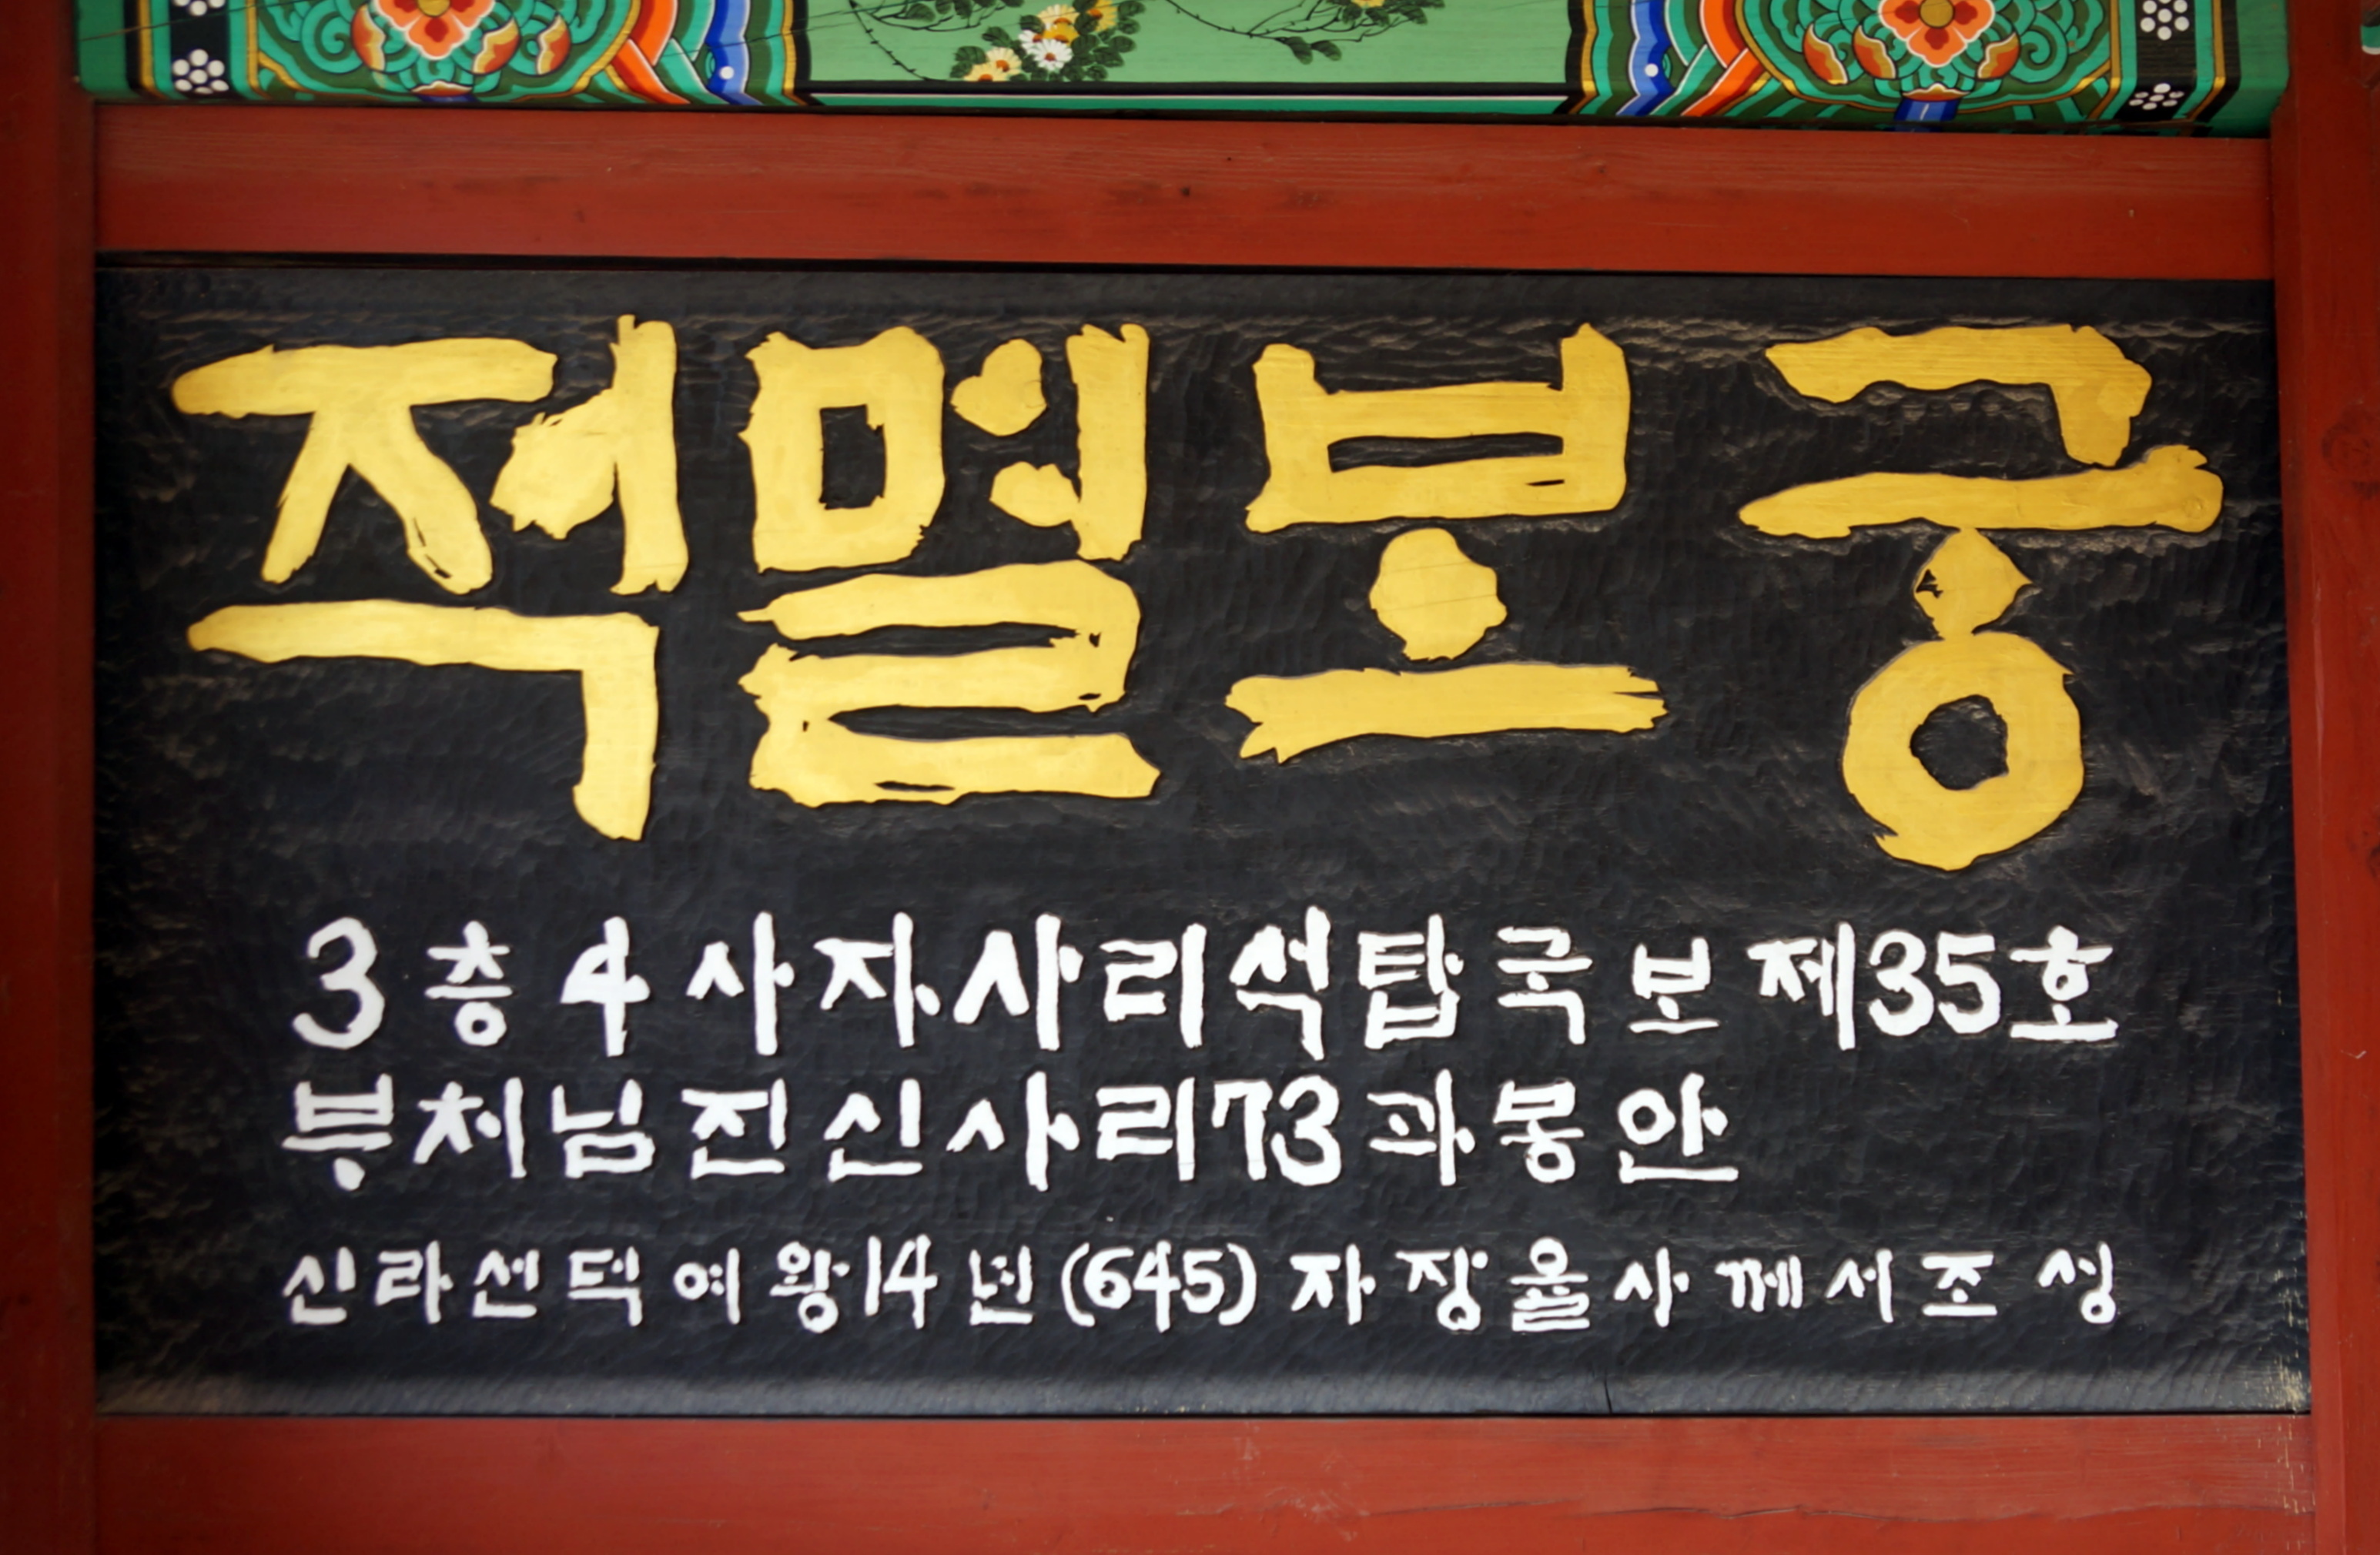 적멸보궁
3층4사자사리석탑국보제35호
부처님진신사리73과봉안
신라선덕여왕14년(645)자장율사께서조성